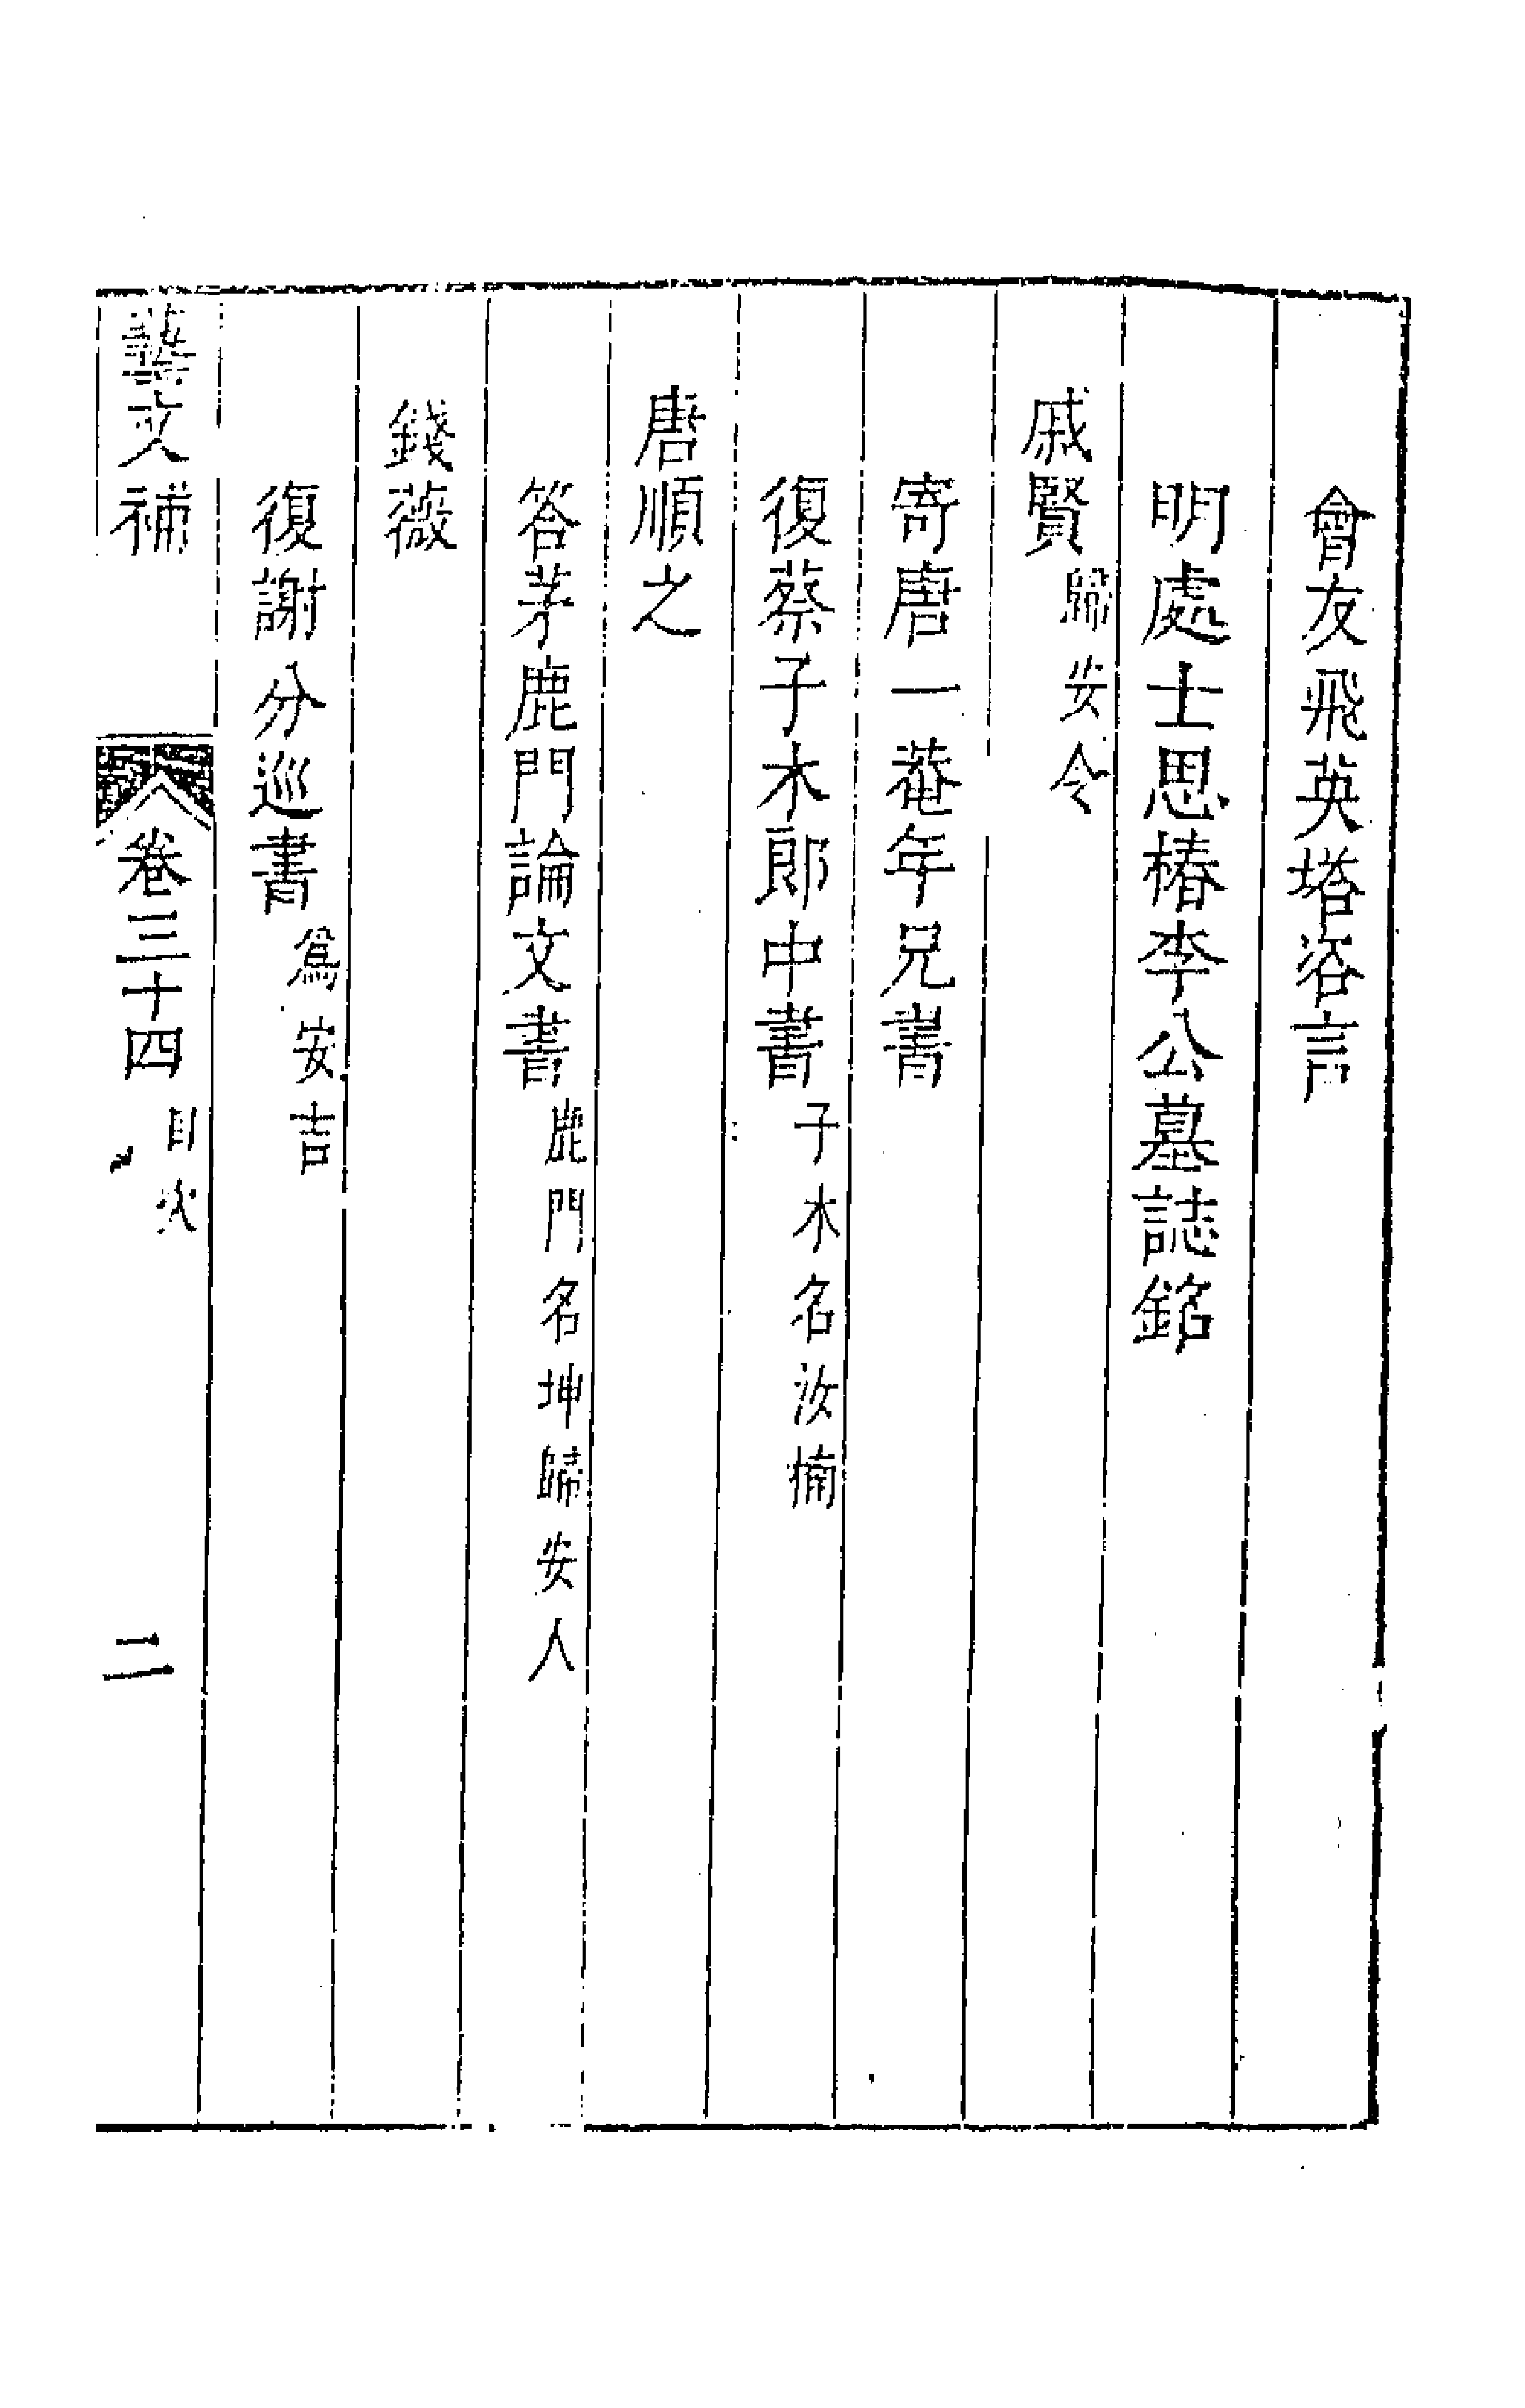 會友飛英塔咨言
明處士思椿李公墓誌銘
戚賢歸安令
寄唐一菴年兄書
復蔡子木郎中書子木名汝楠
唐順之
答茅鹿門論文書鹿門名坤歸安人
錢薇
復謝分巡書爲安吉
藝文補 卷三十四 目次 二